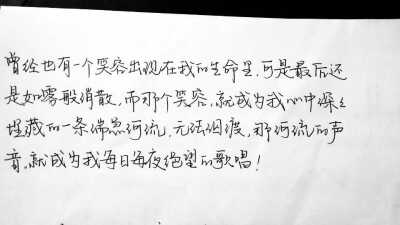 曾经也有一个笑容出现在我的生命里,可是最后还
是如雾般消散,而那个笑容,就成为我心中深深
埋藏的一条湍急河流,无法泅渡,那河流的声
音,就成为我每日每夜绝望的歌唱!